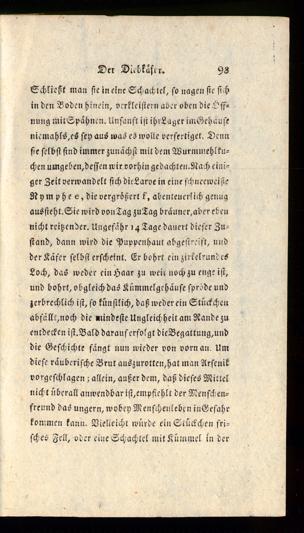 Der Diebkäfer. 93
Schließt man sie in eine Schachtel, so nagen sie sich
in den Boden hinein, verkleistern aber oben die Öff-
nung mit Spähnen. Unsanft ist ihr Lager im Gehäuse
niemahls, es sey aus was es wolle verfertiget. Denn
sie selbst sind immer zunächst mit dem Wurmmehlku-
chen umgeben, dessen wir vorhin gedachten. Nach eini-
ger Zeit verwandelt sich die Larve in eine schneeweiße
Nymphe, die vergrößert f, abenteuerlich genug
aussieht. Sie wird von Tag zu Tag bräuner, aber eben
nicht reitzender. Ungefähr 14 Tage dauert dieser Zu-
stand, dann wird die Puppenhaut abgestreift, und
der Käfer selbst erscheint. Er bohrt ein zirkelrundes
Loch, das weder ein Haar zu weit noch zu enge ist,
und bohrt, obgleich das Kümmelgehäuse spröde und
zerbrechlich ist, so künstlich, daß weder ein Stückchen
abfällt, noch die mindeste Ungleichheit am Rande zu
entdecken ist. Bald darauf erfolgt die Begattung, und
die Geschichte fängt nun wieder von vorn an. Um
diese räuberische Brut auszurotten, hat man Arsenik
vorgeschlagen; allein, außer dem, daß dieses Mittel
nicht überall anwendbar ist, empfiehlt der Menschen-
freund das ungern, wobey Menschenleben in Gefahr
kommen kann. Vielleicht würde ein Stückchen fri-
sches Fell, oder eine Schachtel mit Kümmel in der